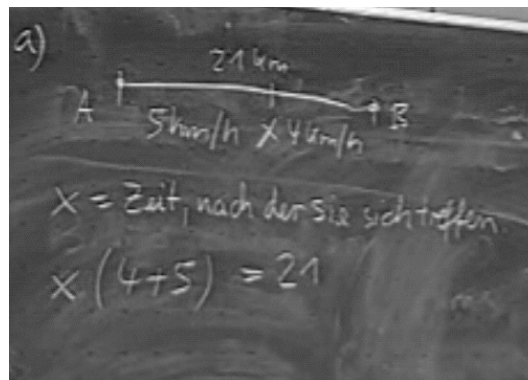 a)
21 km
A B
5 km/h x 4 km/h
x = Zeit, nach der sie sich treffen.
x (4+5) = 21